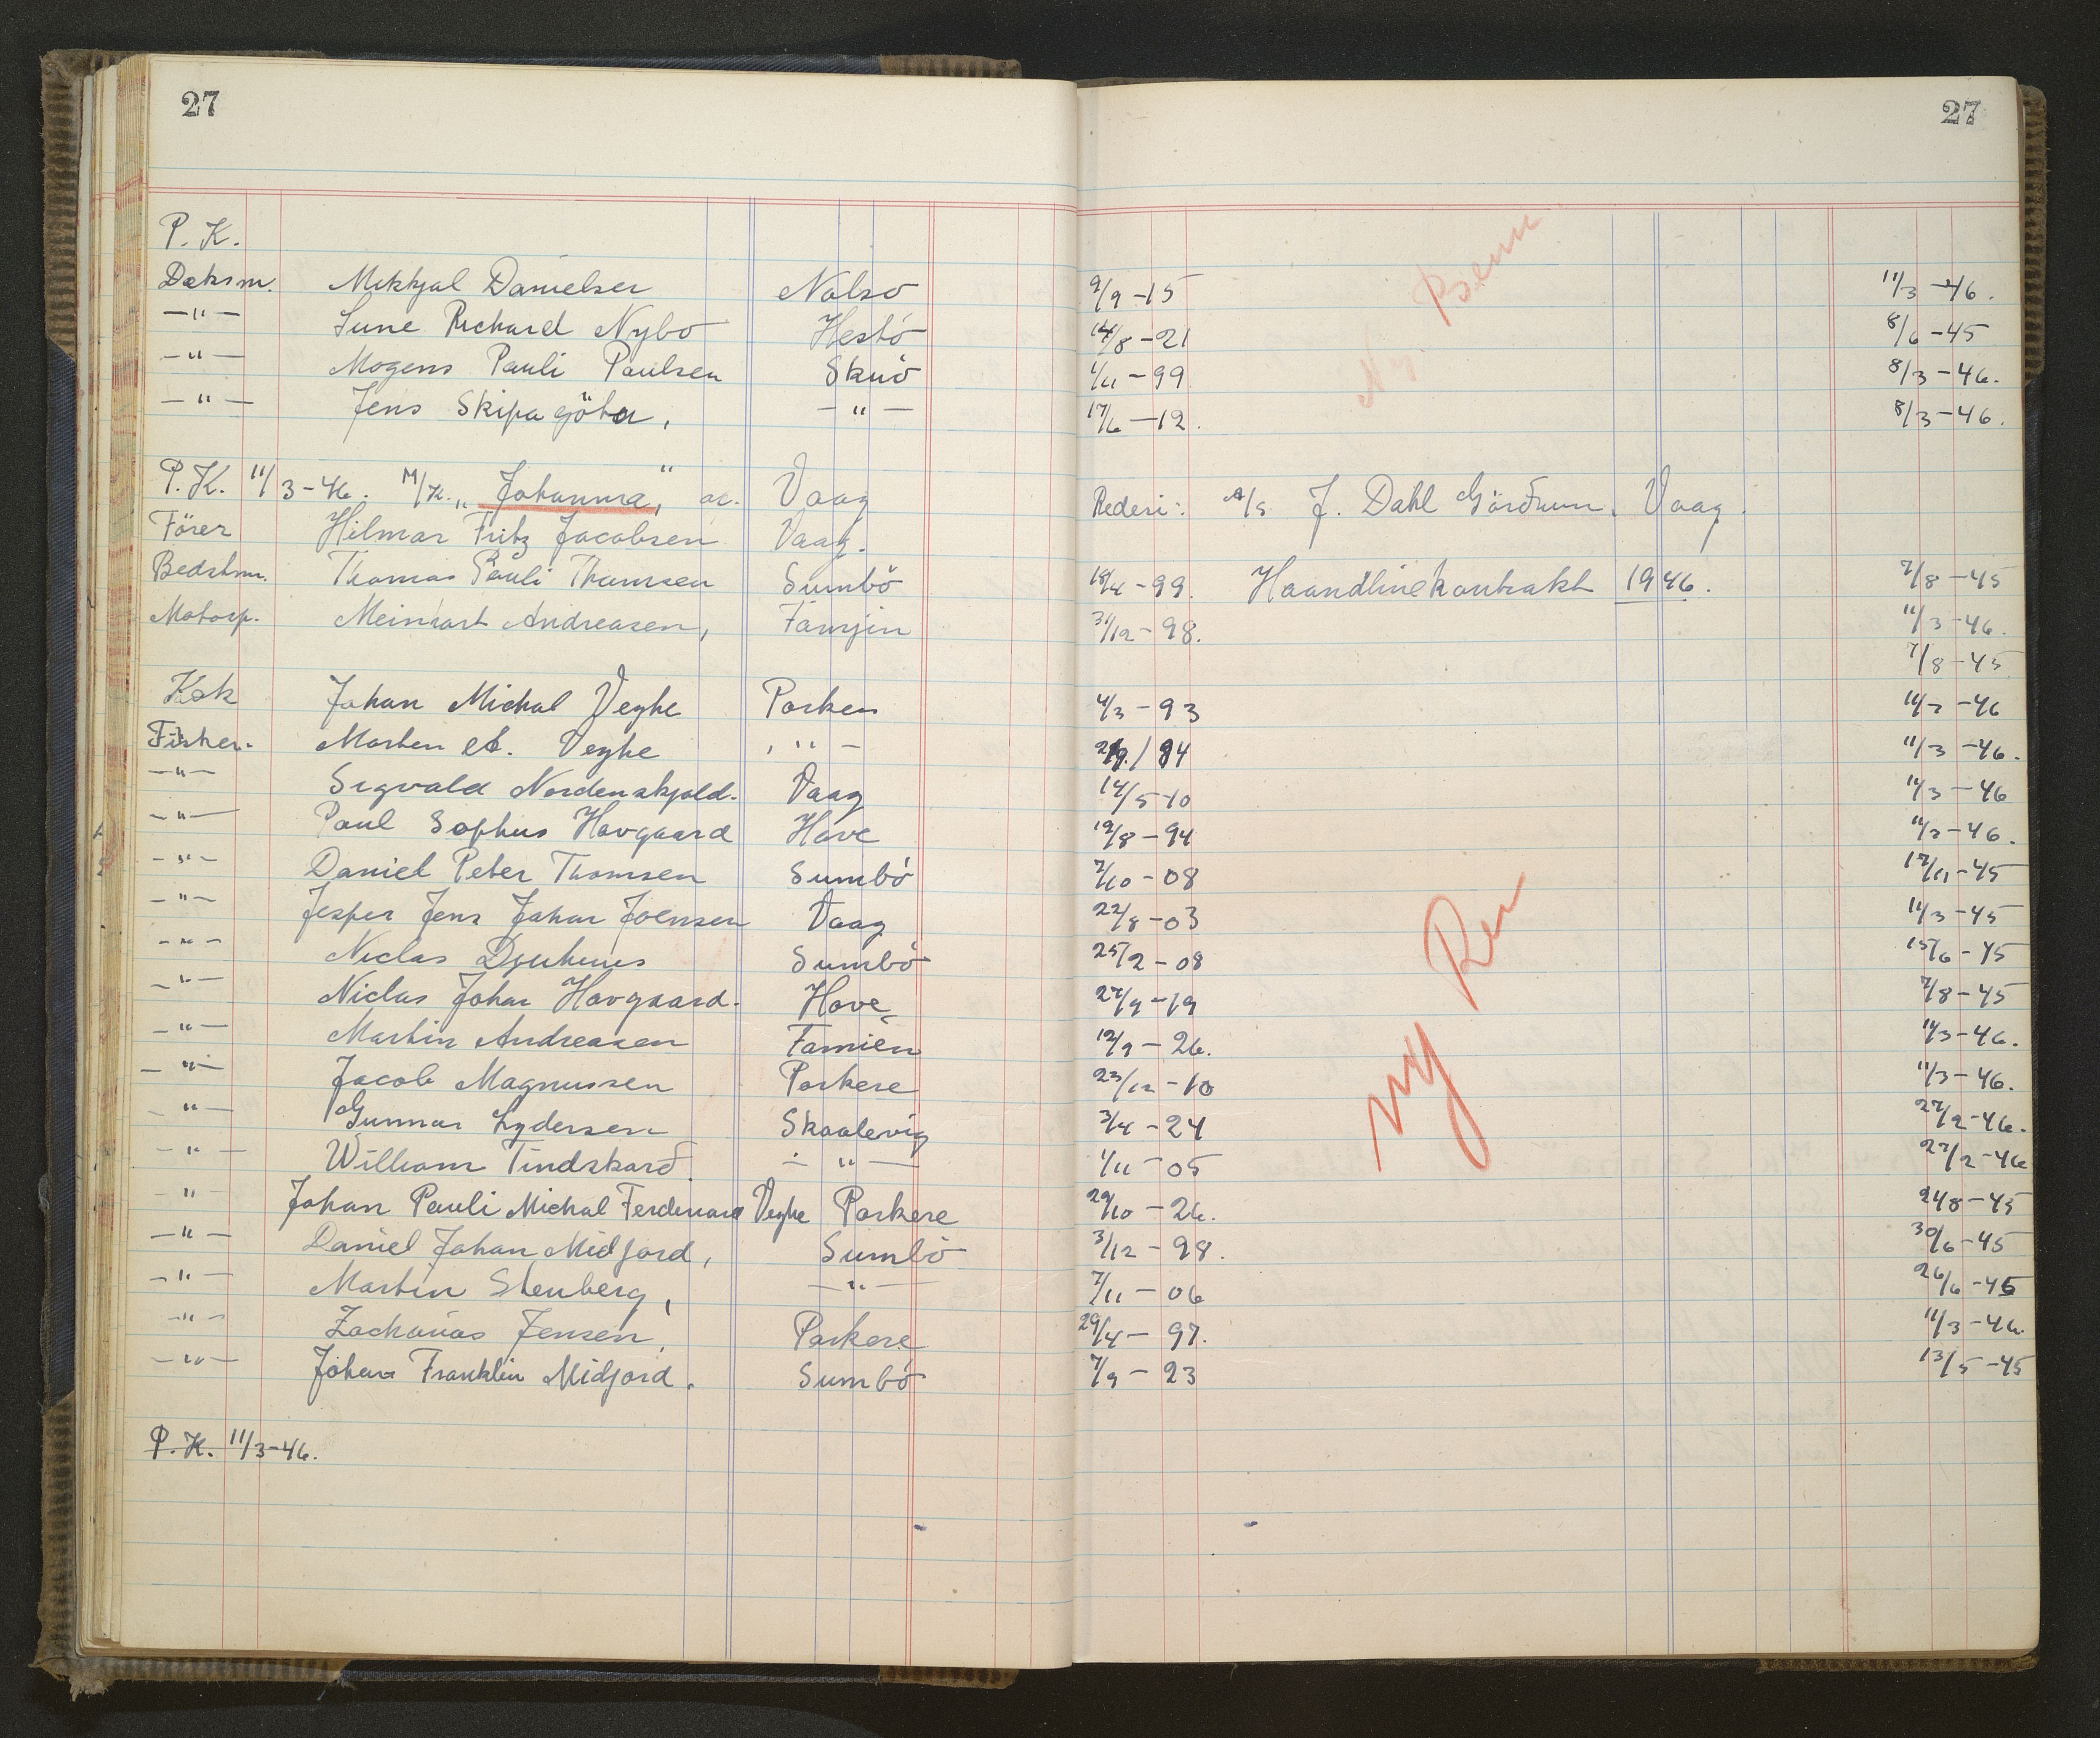 27 27
P. K.
Dæksm. Mikkjal Danielsen Nolsø 9/9 -15 11/3 -46.
-"- Sune Richard Nybo Hestö 14/8 -21 8/6 -45
-"- Mogens Pauli Paulsen Skuö 1/11 -99 8/3 -46.
-"- Jens Skipagöta, -"- 17/6 -12. 8/3 -46.
P.K. 11/3-46. M/K. „Johanna" ac. Vaag Rederi: A/S J. Dahl Görðum. Vaag.
Förer Hilmar Fritz Jacobsen Vaag.
Bedstm. Thomas Pauli Thomsen Sumbö 18/4 -99. Haandlinekontrakt 1946. 7/8 -45
Motorp. Meinhart Andreasen, Famjin 31/12 -98. 11/3 -46.
7/8 -45
Kok Johan Michal Veyhe Porken 4/3 -93 11/3 -46
Fisker. Morten A. Veyhe -"- 84 11/3 -46.
-"- Sigvald Nordenskjold. Vaag 14/5 -10 11/3 -46
-"- Poul Sophus Hovgaard Hove 19/8 -94 11/3 -46.
-"- Daniel Peter Thomsen Sumbö 7/10 -08 17/11 -45
-"- Jesper Jens Johan Joensen Vaag 22/8 -03 11/3 -45
-"- Niclas Djurhuus Sumbö 25/2 -08 15/6 -45
-"- Niclas Johan Hovgaard. Hove 27/9 -19 7/8 -45
-"- Martin Andreasen Famien 12/9 -26. 11/3 -46.
-"- Jacob Magnussen Porkere 23/12 -10 11/3 -46.
-"- Gunnar Lydersen Skaalevig 3/4 -24 27/2 -46.
-"- William Tindskard. -"- 1/11 -05 27/2 -46
-"- Johan Pauli Michal Ferdinand Veyhe Porkere 29/10 -26. 24/8 -45
-"- Daniel Johan Midjord, Sumbö 3/12 -98. 30/6 -45
-"- Martin Stenberg, -"- 7/11 -06 26/6 -45
-"- Zacharias Jensen, Porkere 29/4 -97. 11/3 -46.
-"- Johan Franklin Midjord. Sumbö 7/9 -23 13/5 -45
P.K. 11/3-46.
Ny
ny